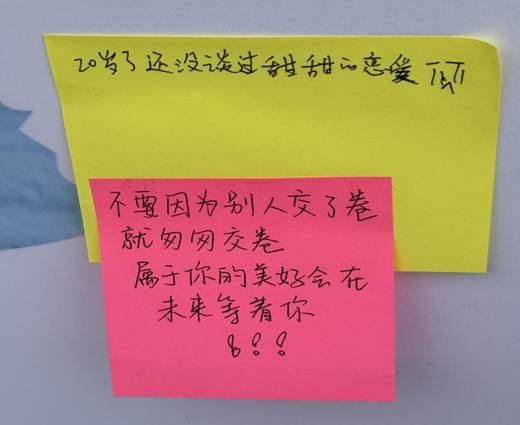 20岁了还没谈过甜甜的恋爱 TAT
不要因为别人交了卷
就匆匆交卷
属于你的美好会在
未来等着你
!!!